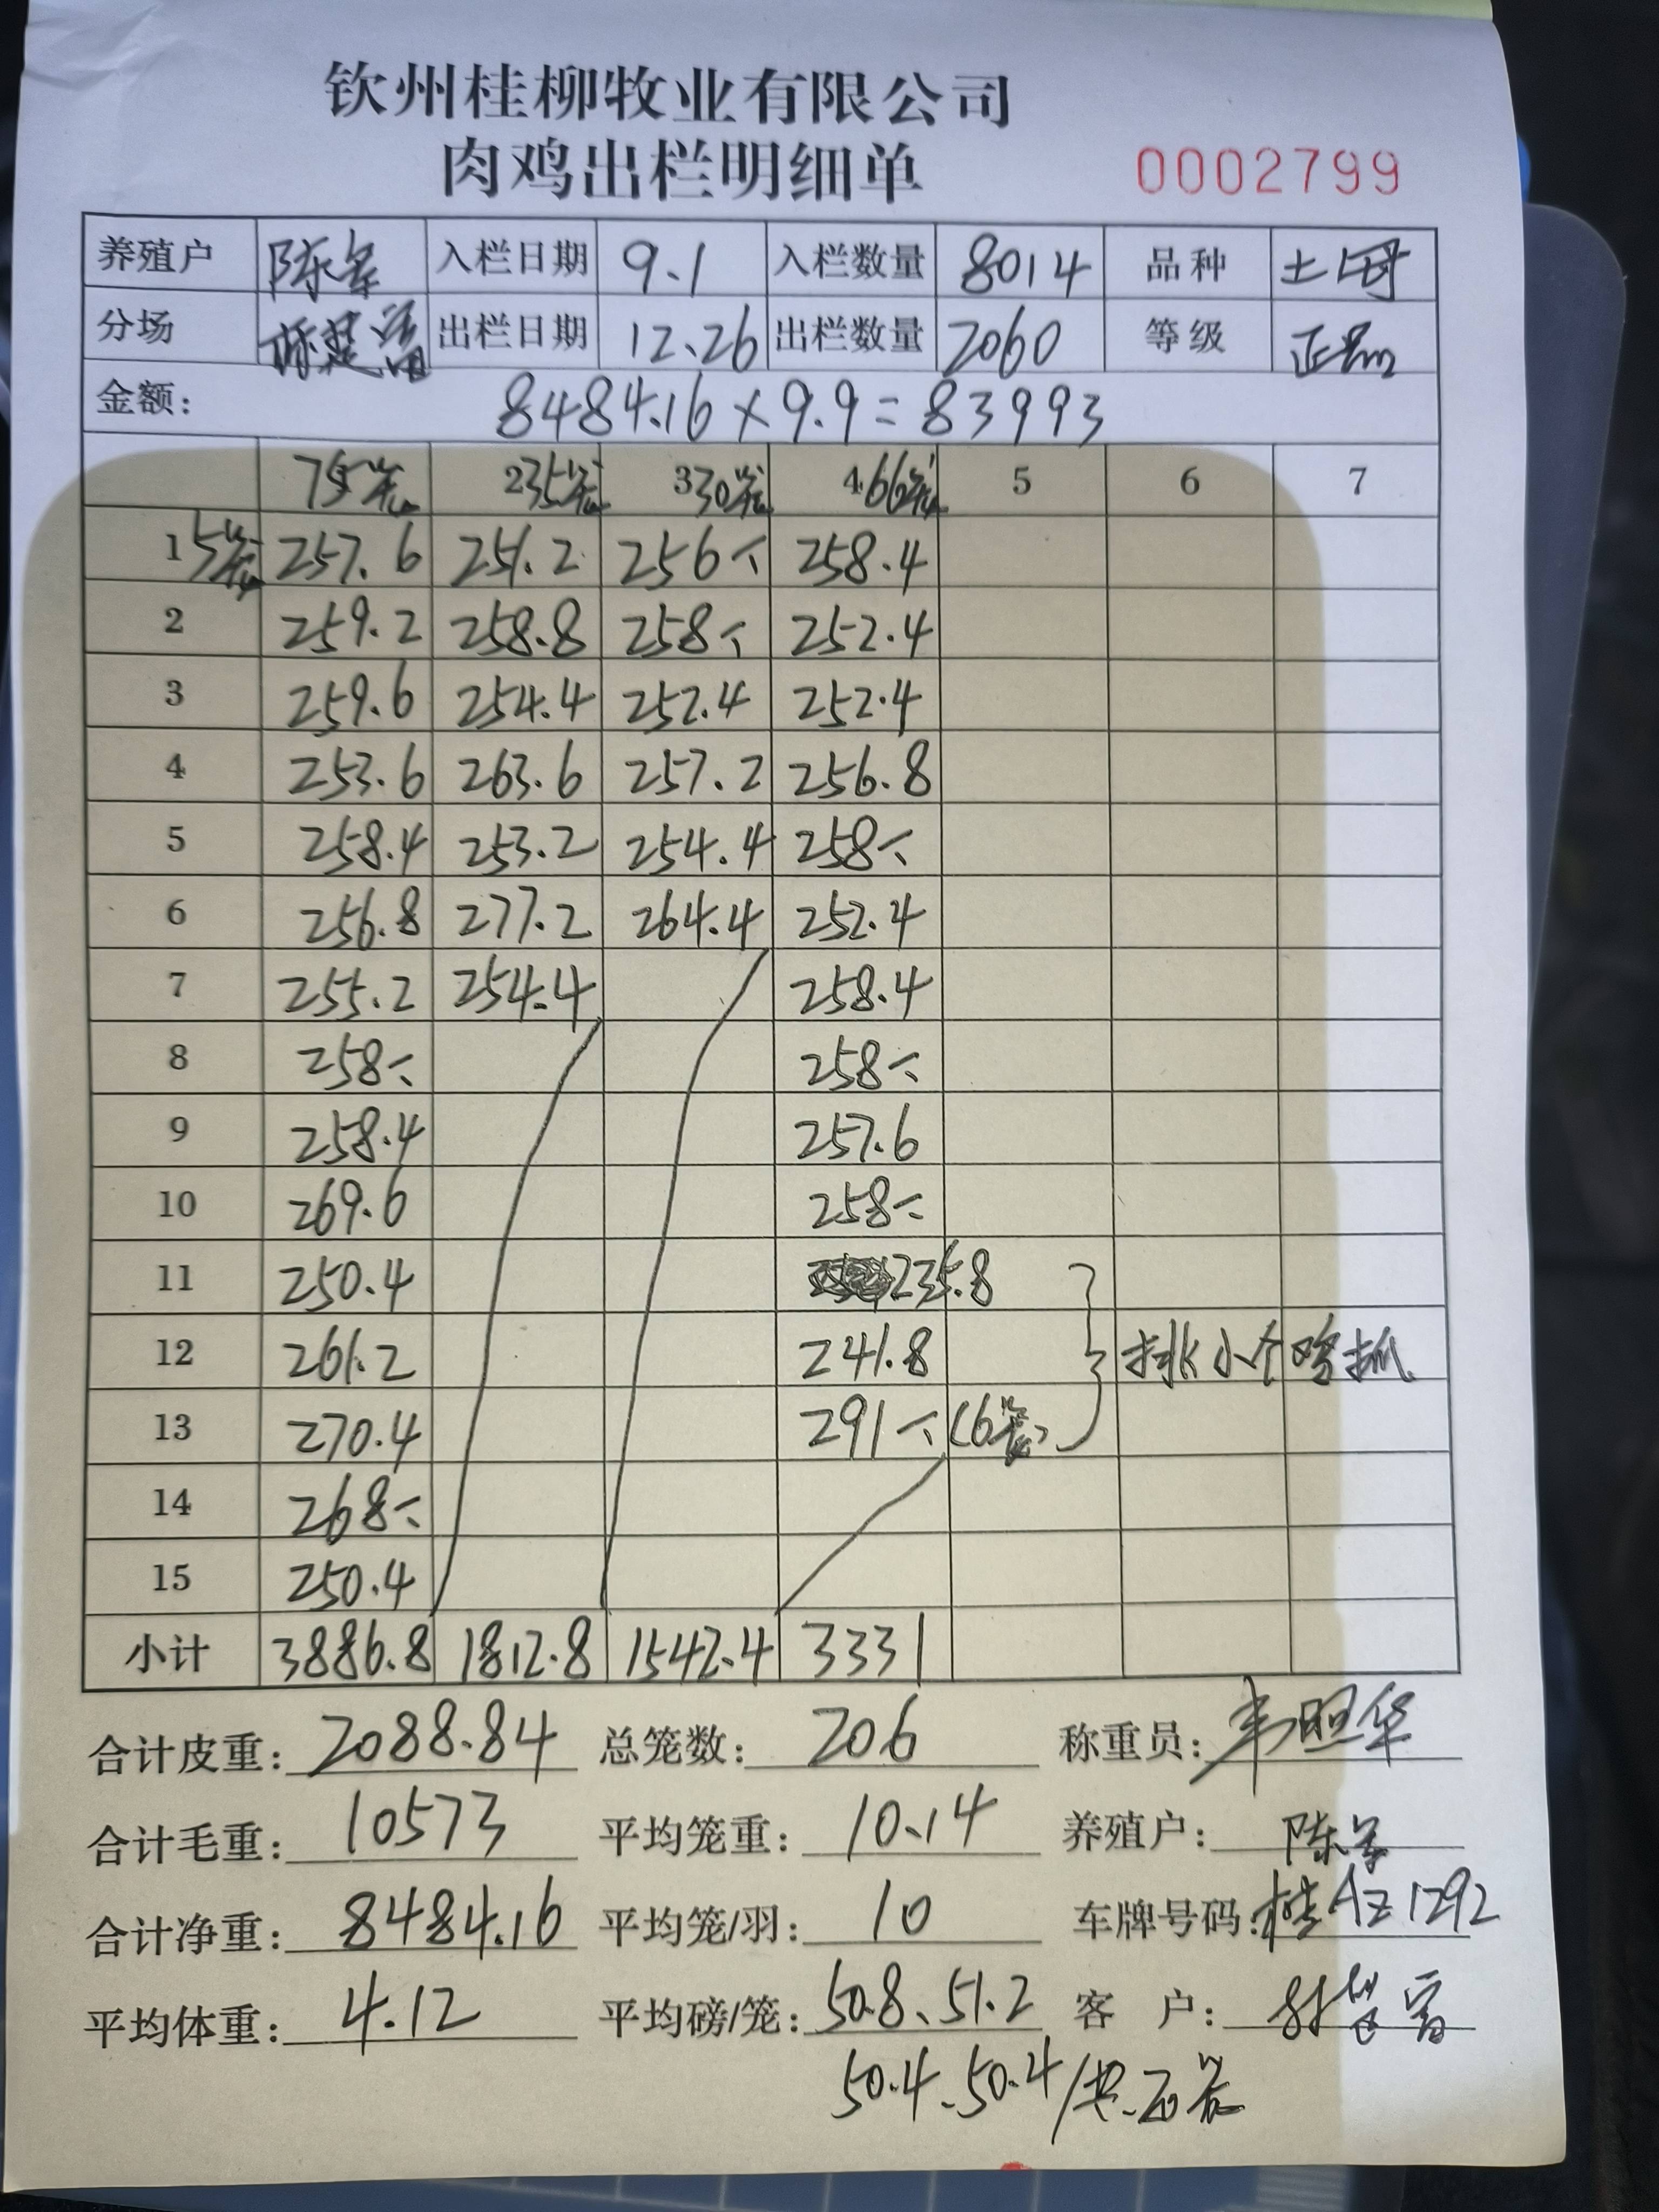 钦州桂柳牧业有限公司
肉鸡出栏明细单 0002799
养殖户 陈军 入栏日期 9.1 入栏数量 8014 品种 土母
分场 出栏日期 12.26 出栏数量 2060 等级 正品
金额: 8484.16×9.9=83993
75笼 2 35笼 3 30笼 4 66笼 5 6 7
1 5笼 257.6 251.2 256 258.4
2 259.2 258.8 258 252.4
3 259.6 254.4 252.4 252.4
4 253.6 263.6 257.2 256.8
5 258.4 253.2 254.4 258
6 256.8 277.2 264.4 252.4
7 255.2 254.4 258.4
8 258 258
9 258.4 257.6
10 269.6 258
11 250.4 235.8
12 261.2 241.8 挑小个鸡抓
13 270.4 291 (6笼)
14 268
15 250.4
小计 3886.8 1812.8 1542.4 3331
合计皮重: 2088.84 总笼数: 206 称重员: 韦照华
合计毛重: 10573 平均笼重: 10.14 养殖户: 陈军
合计净重: 8484.16 平均笼/羽: 10 车牌号码: 桂AZ1292
平均体重: 4.12 平均磅/笼: 50.8、51.2 客 户:
50.4、50.4/共20笼